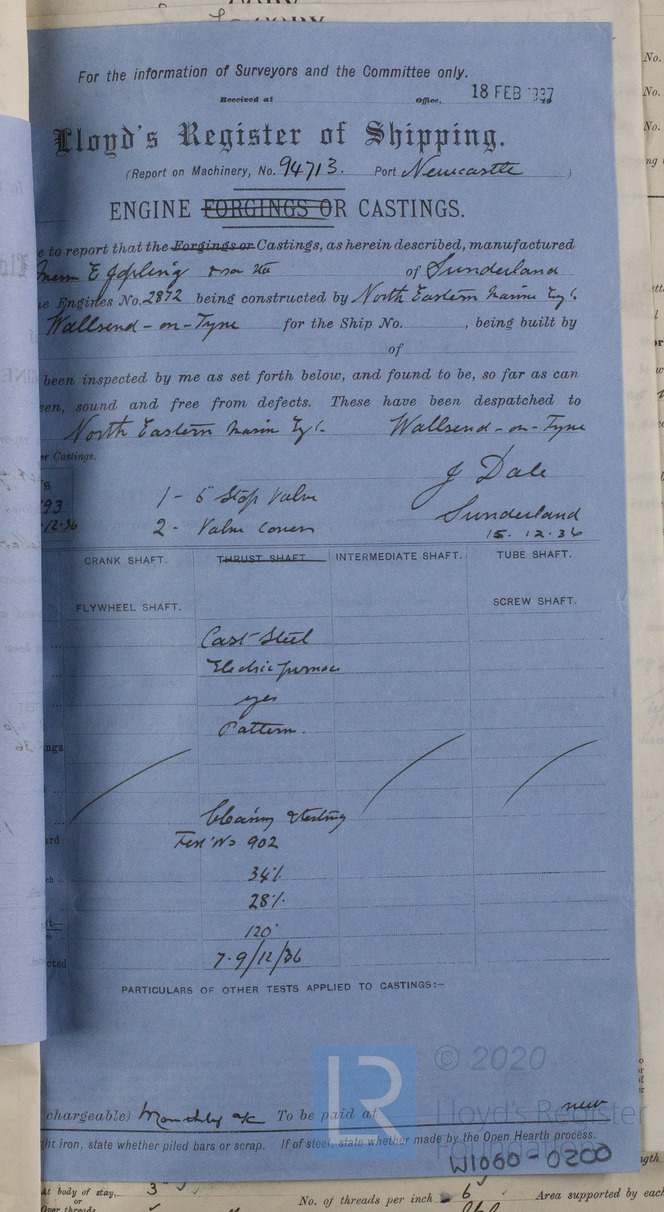 For the information of Surveyors and the Committee only.
Received at Office, 18 FEB 1937
Lloyd's Register of Shipping.
(Report on Machinery, No. 94713. Port Newcastle )
ENGINE FORGINGS OR CASTINGS.
e to report that the Forgings or Castings, as herein described, manufactured
E Jopling of Sunderland
e Engines No. 2872 being constructed by North Eastern Marine Eng Co.
Wallsend-on-Tyne for the Ship No. , being built by
of
been inspected by me as set forth below, and found to be, so far as can
een, sound and free from defects. These have been despatched to
North Eastern Marine Eng Co. Wallsend-on-Tyne
er Castings.
J Dale
1 - 6" Stop Valve
93
Sunderland
12.36
2 - Valve covers
15.12.36
CRANK SHAFT. THRUST SHAFT INTERMEDIATE SHAFT. TUBE SHAFT.
FLYWHEEL SHAFT. SCREW SHAFT.
Cast Steel
Electric furnace
yes
Pattern.
ngs
Cleaning & testing
rd
Test No 902
ch
34%
28%
120°
cted
7.9/12/36
PARTICULARS OF OTHER TESTS APPLIED TO CASTINGS:—
© 2020
LR
Lloyd's Register
Foundation
chargeable) Monthly a/c To be paid at nwc
ht iron, state whether piled bars or scrap. If of steel, state whether made by the Open Hearth process.
W1060-0200
At body of stay, 3
or
Over threads
No. of threads per inch 6 Area supported by each